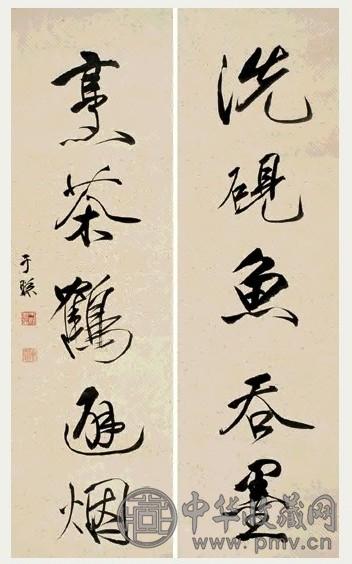 洗硯魚吞墨
烹茶鶴避烟
中华收藏网
www.pmv.cn